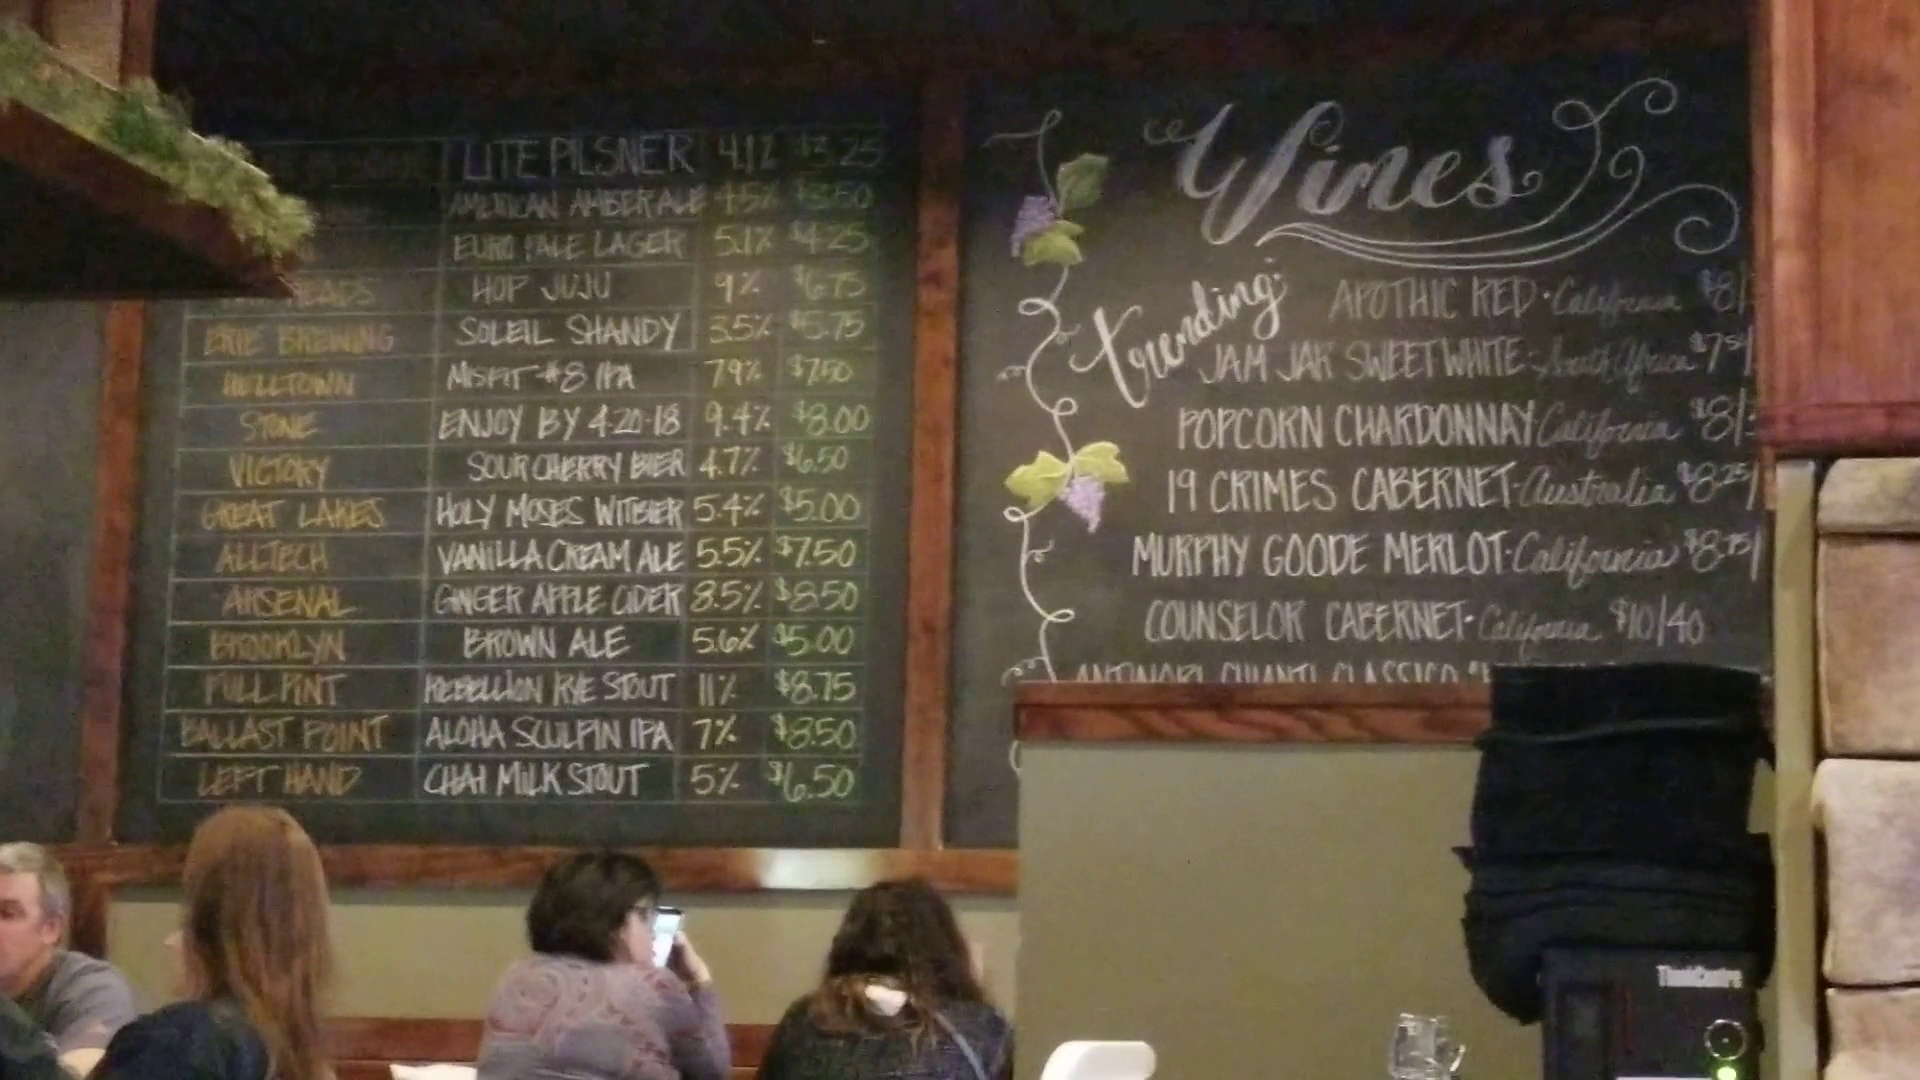 LITE PILSNER 4.1% $3.25
AMERICAN AMBER ALE 4.5% $3.50
EURO PALE LAGER 5.1% $4.25
HOP JUJU 9% $6.75
ERIE BREWING SOLEIL SHANDY 3.5% $5.75
HELLTOWN MISFIT #8 IPA 7.9% $7.50
STONE ENJOY BY 4·20·18 9.4% $8.00
VICTORY SOUR CHERRY BIER 4.7% $6.50
GREAT LAKES HOLY MOSES WITBIER 5.4% $5.00
ALLTECH VANILLA CREAM ALE 5.5% $7.50
ARSENAL GINGER APPLE CIDER 8.5% $8.50
BROOKLYN BROWN ALE 5.6% $5.00
FULL PINT REBELLION RYE STOUT 11% $8.75
BALLAST POINT ALOHA SCULPIN IPA 7% $8.50
LEFT HAND CHAI MILK STOUT 5% $6.50
Wines
trending:
APOTHIC RED · California $8/
JAM JAR SWEET WHITE · South Africa $7.50/
POPCORN CHARDONNAY · California $8/
19 CRIMES CABERNET · Australia $8.25/
MURPHY GOODE MERLOT · California $8.75/
COUNSELOR CABERNET · California $10/40
ANTINORI CHIANTI CLASSICO
ThinkCentre